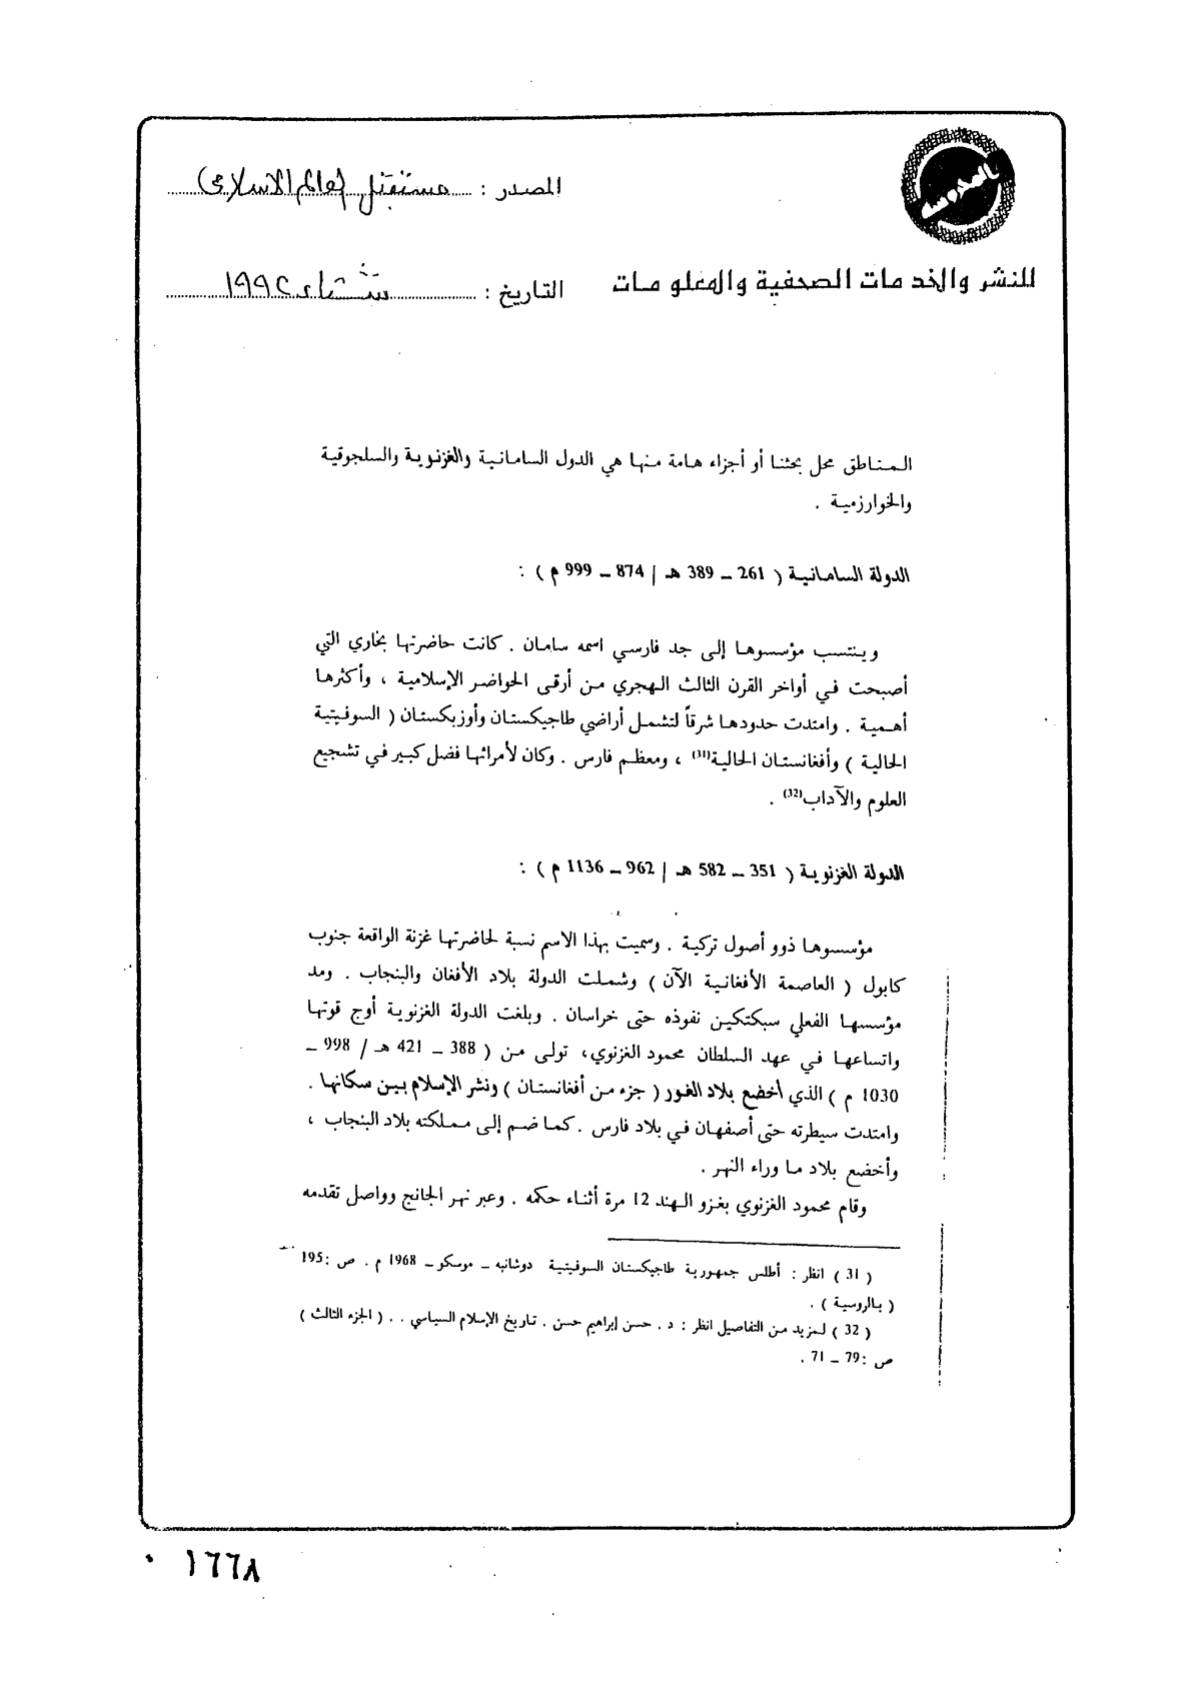 المصدر : مستقبل العالم الاسلامي
للنشر والخدمات الصحفية والمعلومات
التاريخ : شتاء ١٩٩٢
المناطق محل بحثنا أو أجزاء هامة منها هي الدول السامانية والغزنوية والسلجوقية
والخوارزمية .
الدولة السامانية ( 261 – 389 هـ / 874 – 999 م ) :
وينتسب مؤسسوها إلى جد فارسي اسمه سامان . كانت حاضرتها بخاري التي
أصبحت في أواخر القرن الثالث الهجري من أرقى الحواضر الإسلامية ، وأكثرها
أهمية . وامتدت حدودها شرقاً لتشمل أراضي طاجيكستان وأوزبكستان ( السوفيتية
الحالية ) وأفغانستان الحالية(31) ، ومعظم فارس . وكان لأمرائها فضل كبير في تشجيع
العلوم والآداب(32) .
الدولة الغزنوية ( 351 – 582 هـ / 962 – 1136 م ) :
مؤسسوها ذوو أصول تركية . وسميت بهذا الاسم نسبة لحاضرتها غزنة الواقعة جنوب
كابول ( العاصمة الأفغانية الآن ) وشملت الدولة بلاد الأفغان والبنجاب . ومد
مؤسسها الفعلي سبكتكين نفوذه حتى خراسان . وبلغت الدولة الغزنوية أوج قوتها
واتساعها في عهد السلطان محمود الغزنوي، تولى من ( 388 – 421 هـ / 998 –
1030 م ) الذي أخضع بلاد الغور ( جزء من أفغانستان ) ونشر الإسلام بين سكانها .
وامتدت سيطرته حتى أصفهان في بلاد فارس . كما ضم إلى مملكته بلاد البنجاب ،
وأخضع بلاد ما وراء النهر .
وقام محمود الغزنوي بغزو الهند 12 مرة أثناء حكمه . وعبر نهر الجانج وواصل تقدمه
( 31 ) انظر : أطلس جمهورية طاجيكستان السوفيتية دوشانبه – موسكو – 1968 م . ص :195
( بالروسية ) .
( 32 ) لمزيد من التفاصيل انظر : د . حسن إبراهيم حسن . تاريخ الإسلام السياسي . . ( الجزء الثالث )
ص :79 – 71 .
١٦٦٨